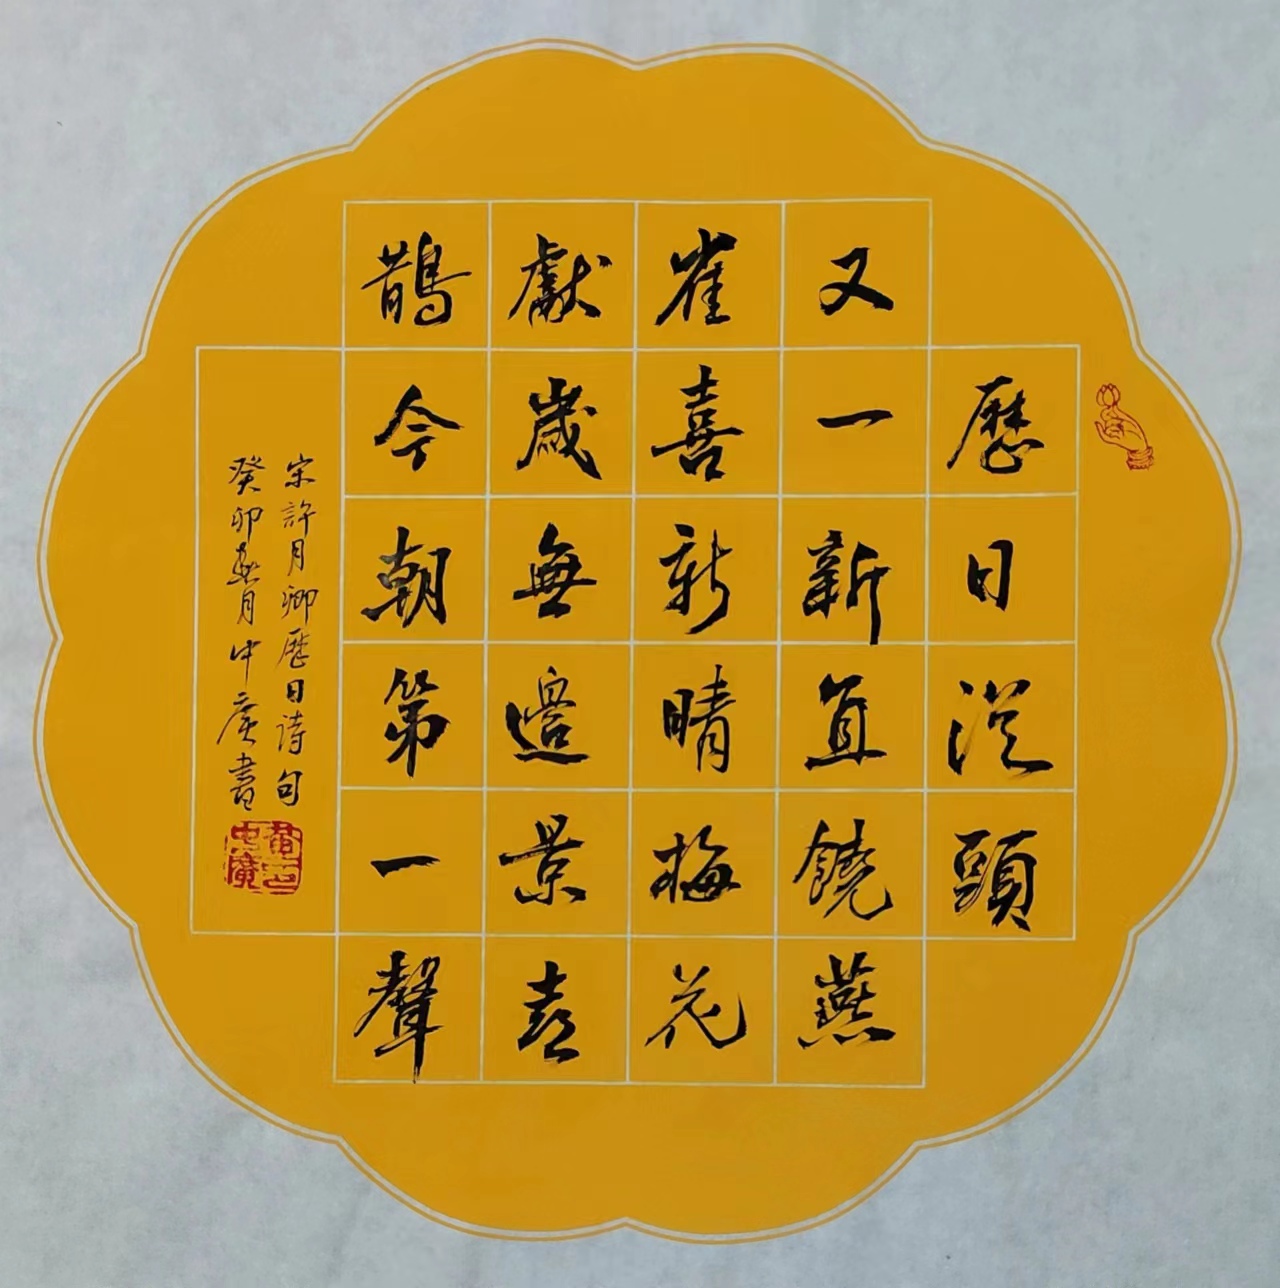 歷日從頭
又一新直饒燕
雀喜新晴梅花
獻歲無邊景喜
鵲今朝第一聲
宋許月卿歷日詩句
癸卯春月中廣書